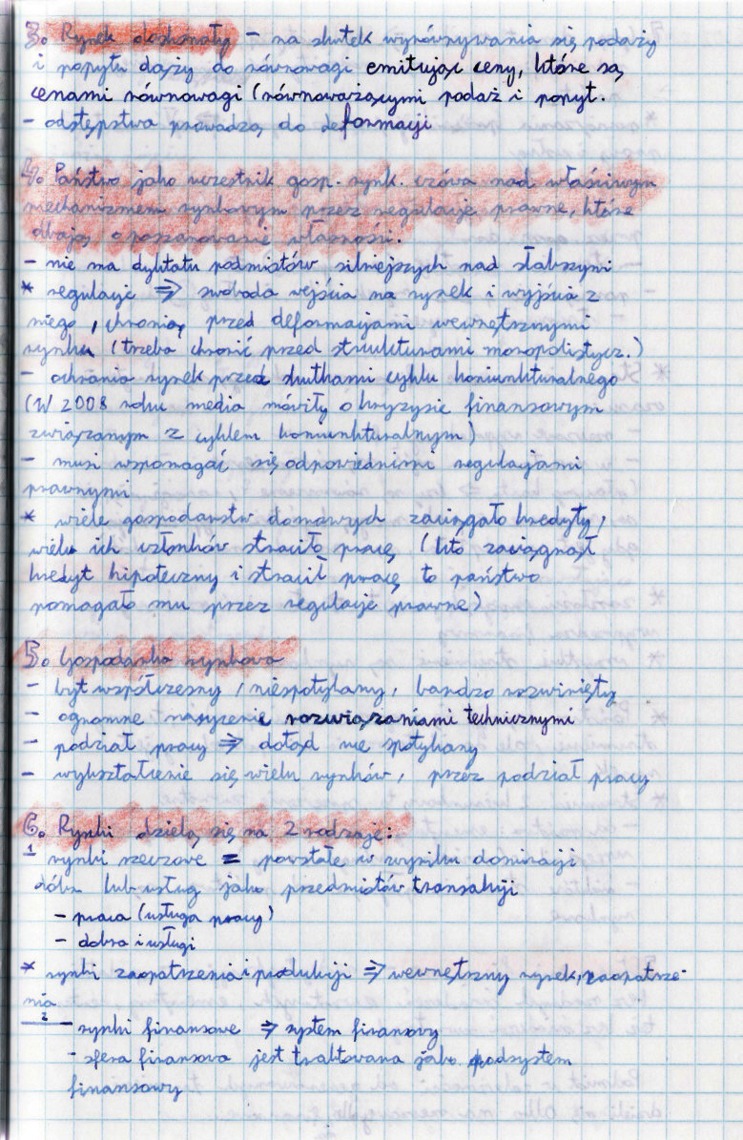 3. Rynek doskonały – na skutek wyrównywania się podaży
i popytu dąży do równowagi emitując ceny, które są
cenami równowagi (równoważącymi podaż i popyt.
– odstępstwa prowadzą do deformacji
4. Państwo jako uczestnik gosp. rynk. czówa nad właściwym
mechanizmem rynkowym przez regulacje prawne, które
dbają o poszanowanie własności.
– nie ma dyktatu podmiotów silniejszych nad słabszymi
* regulacje ⇒ swoboda wejścia na rynek i wyjścia z
niego, chronią przed deformacjami wewnętrznymi
rynku (trzeba chronić przed strukturami monopolistycz.)
– ochrania rynek przed skutkami cyklu koniunkturalnego
(W 2008 roku media mówiły o kryzysie finansowym
związanym z cyklem koniunkturalnym)
– musi wspomagać się odpowiednimi regulacjami
prawnymi
* wiele gospodarstw domowych zaciągało kredyty,
wielu ich członków straciło pracę (kto zaciągnął
kredyt hipoteczny i stracił pracę to państwo
pomagało mu przez regulacje prawne)
5. Gospodarka rynkowa
– byt współczesny, niespotykany, bardzo rozwinięty
– ogromne nasycenie rozwiązaniami technicznymi
– podział pracy ⇒ dotąd nie spotykany
– wykształcenie się wielu rynków, przez podział pracy
6. Rynki dzielą się na 2 rodzaje:
1 rynki rzeczowe = powstałe w wyniku dominacji
dóbr lub usług jako przedmiotów transakcji
– praca (usługa pracy)
– dobra i usługi
* rynki zaopatrzenia i produkcji ⇒ wewnętrzny rynek, zaopatrze-
nia
2 – rynki finansowe ⇒ system finansowy
– sfera finansowa jest traktowana jako podsystem
finansowy